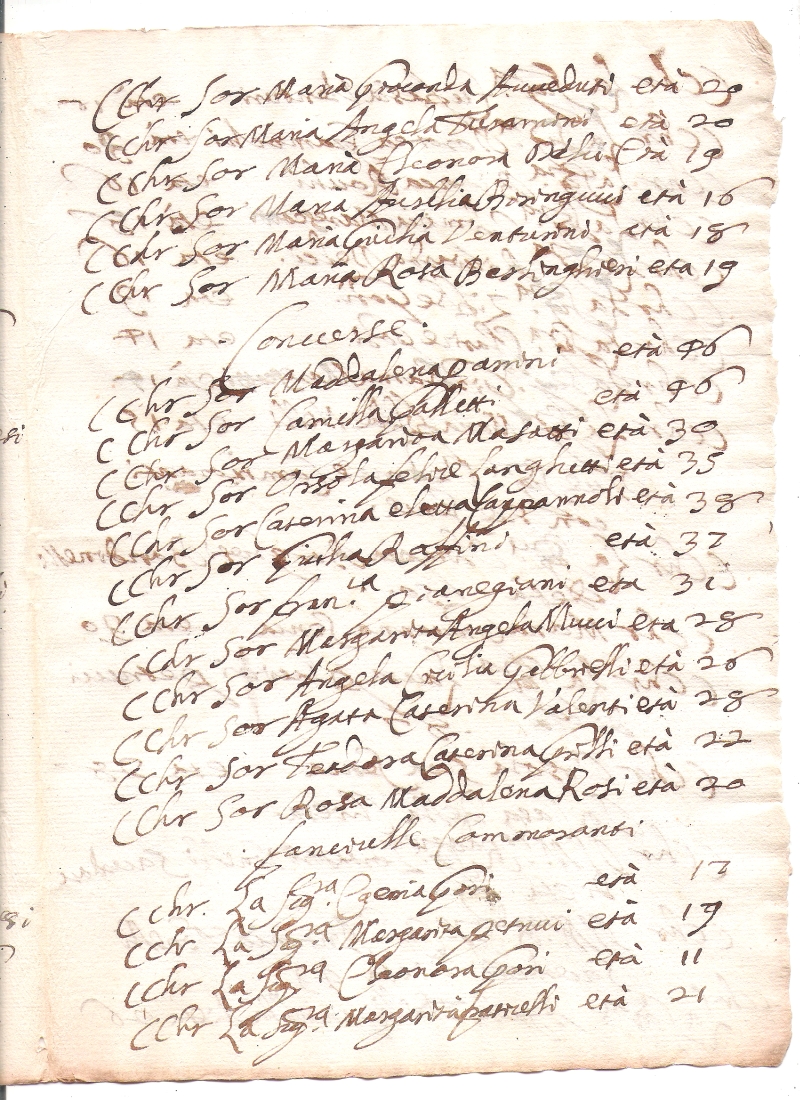 CChr Sor Maria Gioconda Avveduti età 20
CChr Sor Maria Angela Turamini età 20
CChr Sor Maria Eleonora Delci Età 19
CChr Sor Maria Aurelia Biringucci età 16
CChr Sor Maria Giulia Venturini età 18
CChr Sor Maria Rosa Berlinghieri eta 19
Converse
CChr Sor Maddalena Panini età 46
CChr Sor Camilla Galletti età 46
CChr Sor Margarita Masatti età 30
CChr Sor Orsola felice Langhetti età 35
CChr Sor Caterina eletta Cappannoli età 38
CChr Sor Giulia Raffini età 37
CChr Sor fran.ca Pianegiani eta 31
CChr Sor Margarita Angela Mucci eta 28
CChr Sor Angela Cicilia Gabbrielli età 26
CChr Sor Agata Caterina Valenti età 28
CChr Sor Teodora Caterina Grilli età 22
CChr Sor Rosa Maddalena Rosi età 20
fanciulle Commoranti
CChr. La Sig.ra Gori età 17
CChr La Sig.ra Margarita Petrucci età 19
CChr La Sig.ra Eleonora Gori età 11
CChr La Sig.ra Margarita Paticelli età 21